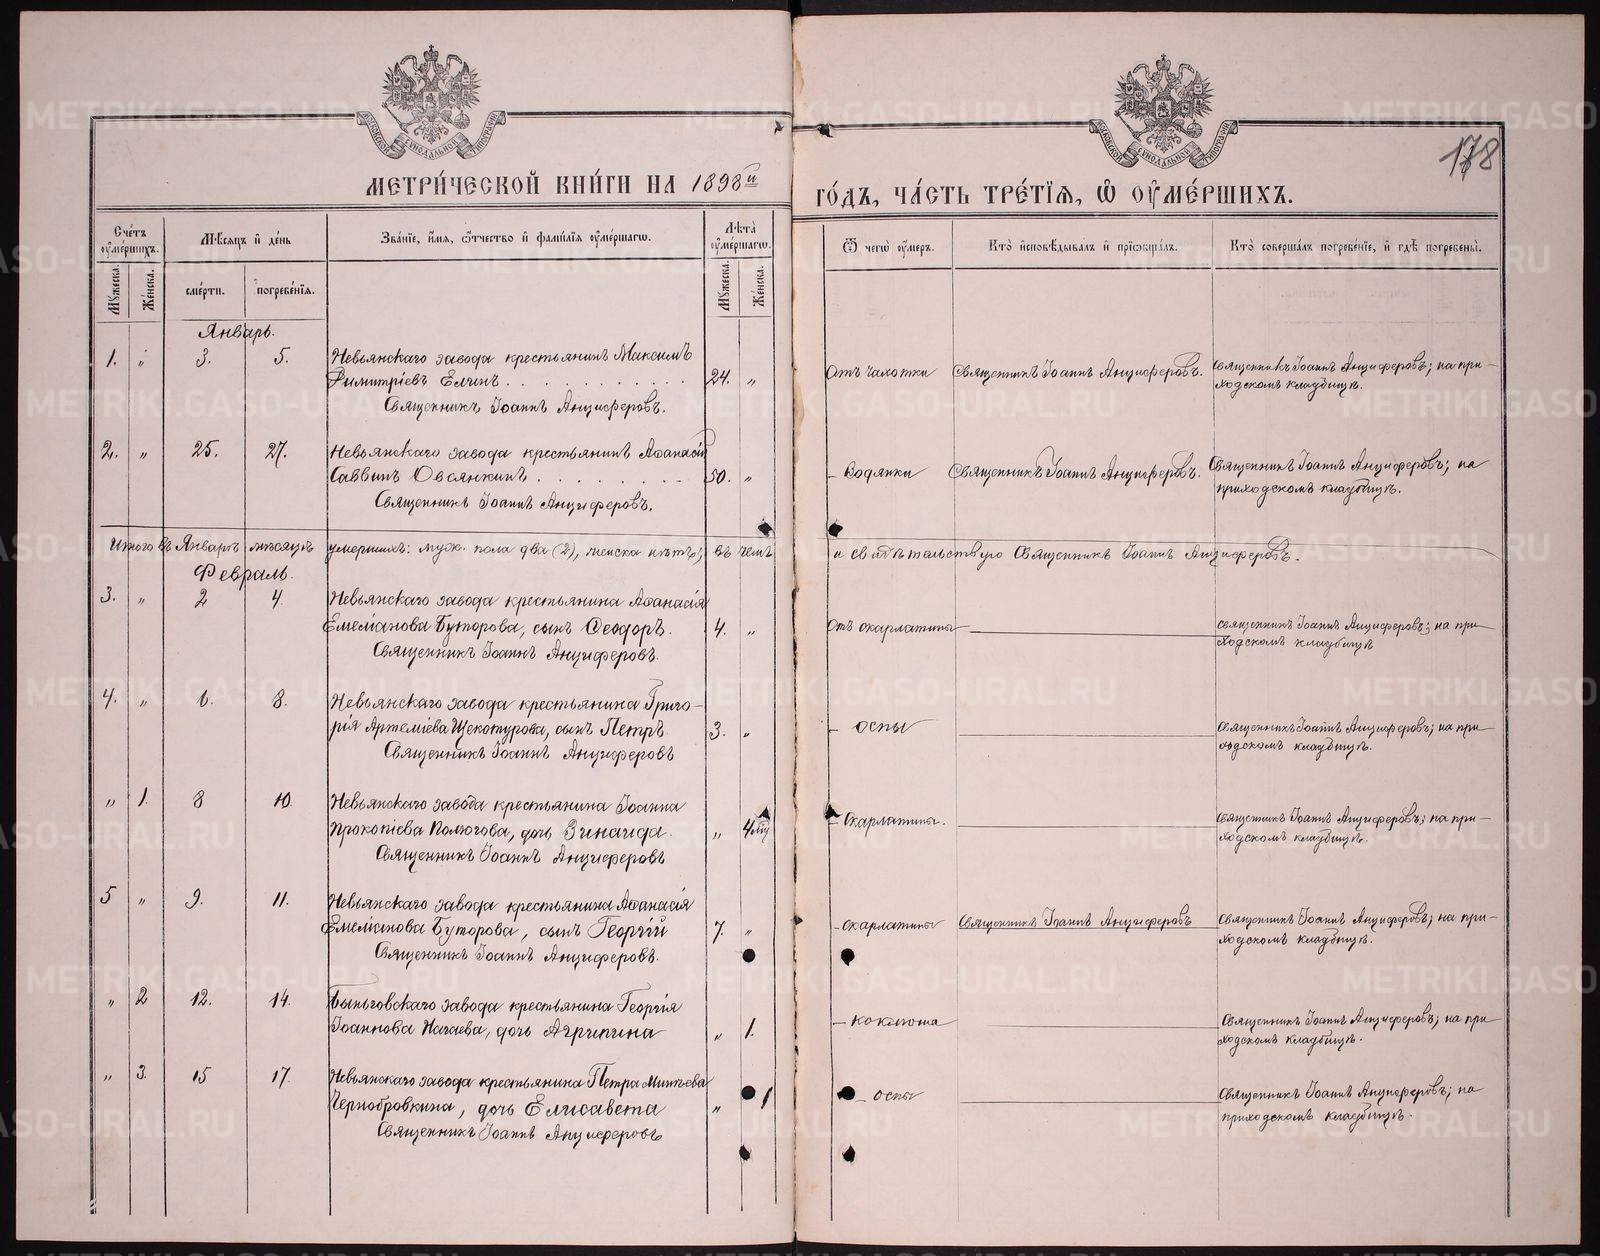 МЕТРИ́ЧЕСКОЙ КНИ́ГИ НА 1898й
ГО́ДЪ, ЧА́СТЬ ТРЕ́ТЇЯ, Ѡ ОУМЕ́РШИХЪ.
178
Сче́тъ оуме́ршихъ.
Мѣ́сяцъ и де́нь
Зва́нїе, и́мя, ѻ́тчество и фами́лїя оуме́ршагѡ.
Лѣ́та оуме́ршагѡ.
Ѿ чегѡ̀ оу́меръ.
Кто̀ и҆сповѣ́дывалъ и҆ прїѡбща́лъ.
Кто̀ соверша́лъ погребе́нїе, и҆ гдѣ̀ погребены̀.
Мꙋ́жеска.
Же́нска.
сме́рти.
погребе́нїя.
Мꙋ́жеска.
Же́нска.
Январь.
1. „ 3. 5. Невьянскаго завода крестьянинъ Максимъ
Димитріевъ Елчинъ . . . 24. „
Священникъ Іоаннъ Анциферовъ.
Отъ чахотки
Священникъ Іоаннъ Анциферовъ.
Священникъ Іоаннъ Анциферовъ; на при-
ходскомъ кладбищѣ.
2. „ 25. 27. Невьянскаго завода крестьянинъ Аѳанасій
Саввинъ Овсянкинъ . . . 50. „
Священникъ Іоаннъ Анциферовъ.
– водянки
Священникъ Іоаннъ Анциферовъ.
Священникъ Іоаннъ Анциферовъ; на
приходскомъ кладбищѣ.
Итого въ Январѣ мѣсяцѣ умершихъ: муж. пола два (2), женска нѣтъ; въ чемъ
и свидѣтельствую Священникъ Іоаннъ Анциферовъ.
Февраль.
3. „ 2 4. Невьянскаго завода крестьянина Аѳанасія
Емеліанова Буторова, сынъ Ѳеодоръ. 4. „
Священникъ Іоаннъ Анциферовъ.
Отъ скарлатины
священникъ Іоаннъ Анциферовъ; на при-
ходскомъ кладбищѣ
4. „ 6. 8. Невьянскаго завода крестьянина Григо-
рія Артеміева Щекотурова, сынъ Петръ 3. „
Священникъ Іоаннъ Анциферовъ
– оспы
Священникъ Іоаннъ Анциферовъ; на при-
ходскомъ кладбищѣ.
„ 1. 8 10. Невьянскаго завода крестьянина Іоанна
Прокопіева Полюгова, дочь Зинаида. „ 4 мц
Священникъ Іоаннъ Анциферовъ
– скарлатины.
Священникъ Іоаннъ Анциферовъ; на при-
ходскомъ кладбищѣ.
5 „ 9. 11. Невьянскаго завода крестьянина Аѳанасія
Емеліанова Буторова, сынъ Георгій 7. „
Священникъ Іоаннъ Анциферовъ.
– скарлатины
Священникъ Іоаннъ Анциферовъ
Священникъ Іоаннъ Анциферовъ; на при-
ходскомъ кладбищѣ.
„ 2 12. 14. Быньговскаго завода крестьянина Георгія
Іоаннова Нагаева, дочь Агрипина „ 1.
– коклюша
Священникъ Іоаннъ Анциферовъ; на при-
ходскомъ кладбищѣ.
„ 3. 15 17. Невьянскаго завода крестьянина Петра Митѣева
Чернобровкина, дочь Елисавета „ 1
Священникъ Іоаннъ Анциферовъ
– оспы
Священникъ Іоаннъ Анциферовъ; на
приходскомъ кладбищѣ.